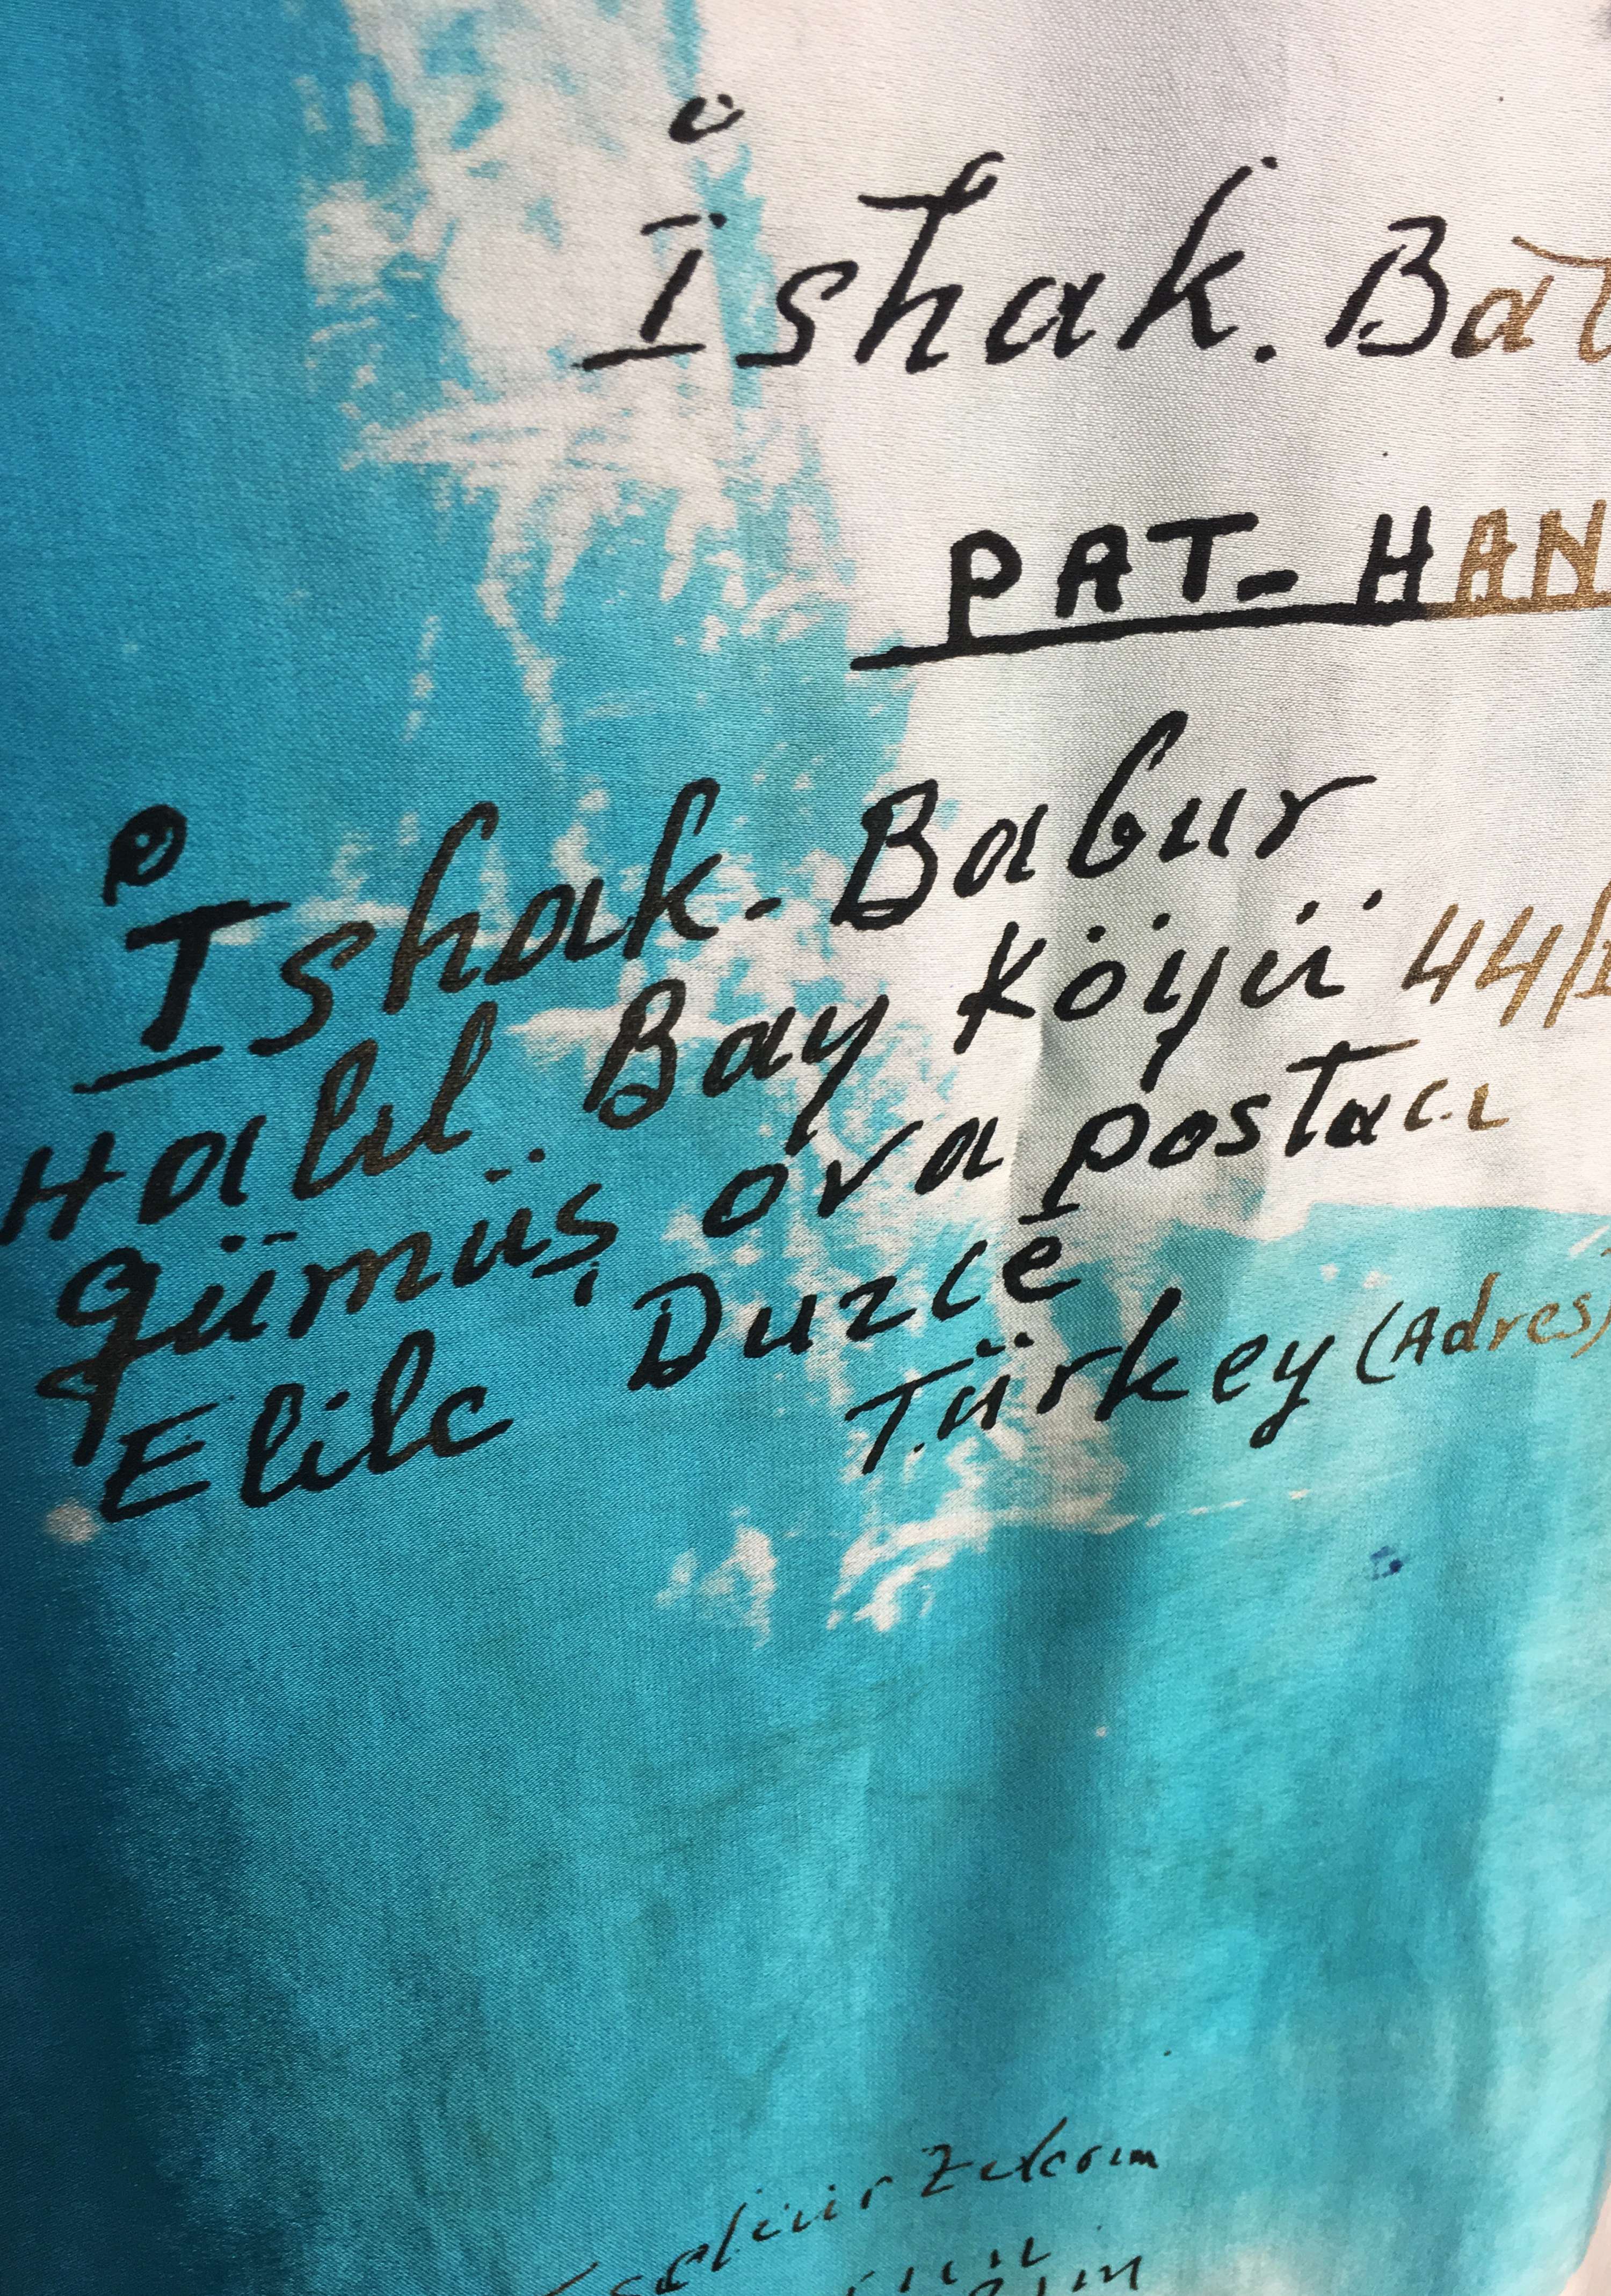 İshak. Bat
PAT-HAN
İshak. Babur
Halil Bay Köyü 44/
gümüş ova postacı
Elilc Duzce
Türkey (Adres)